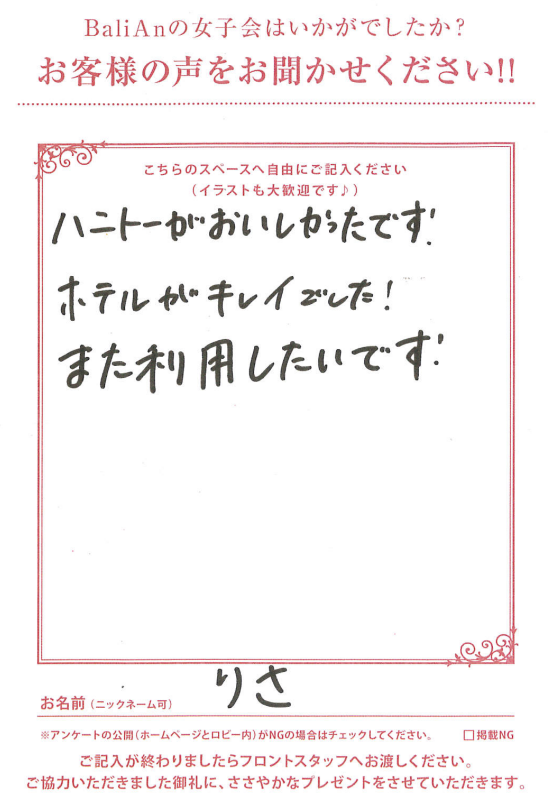 BaliAnの女子会はいかがでしたか?
お客様の声をお聞かせください!!
こちらのスペースへ自由にご記入ください
(イラストも大歓迎です♪)
ハニトーがおいしかったです!
ホテルがキレイでした!
また利用したいです!
りさ
お名前(ニックネーム可)
※アンケートの公開(ホームページとロビー内)がNGの場合はチェックしてください。 □掲載NG
ご記入が終わりましたらフロントスタッフへお渡しください。
ご協力いただきました御礼に、ささやかなプレゼントをさせていただきます。